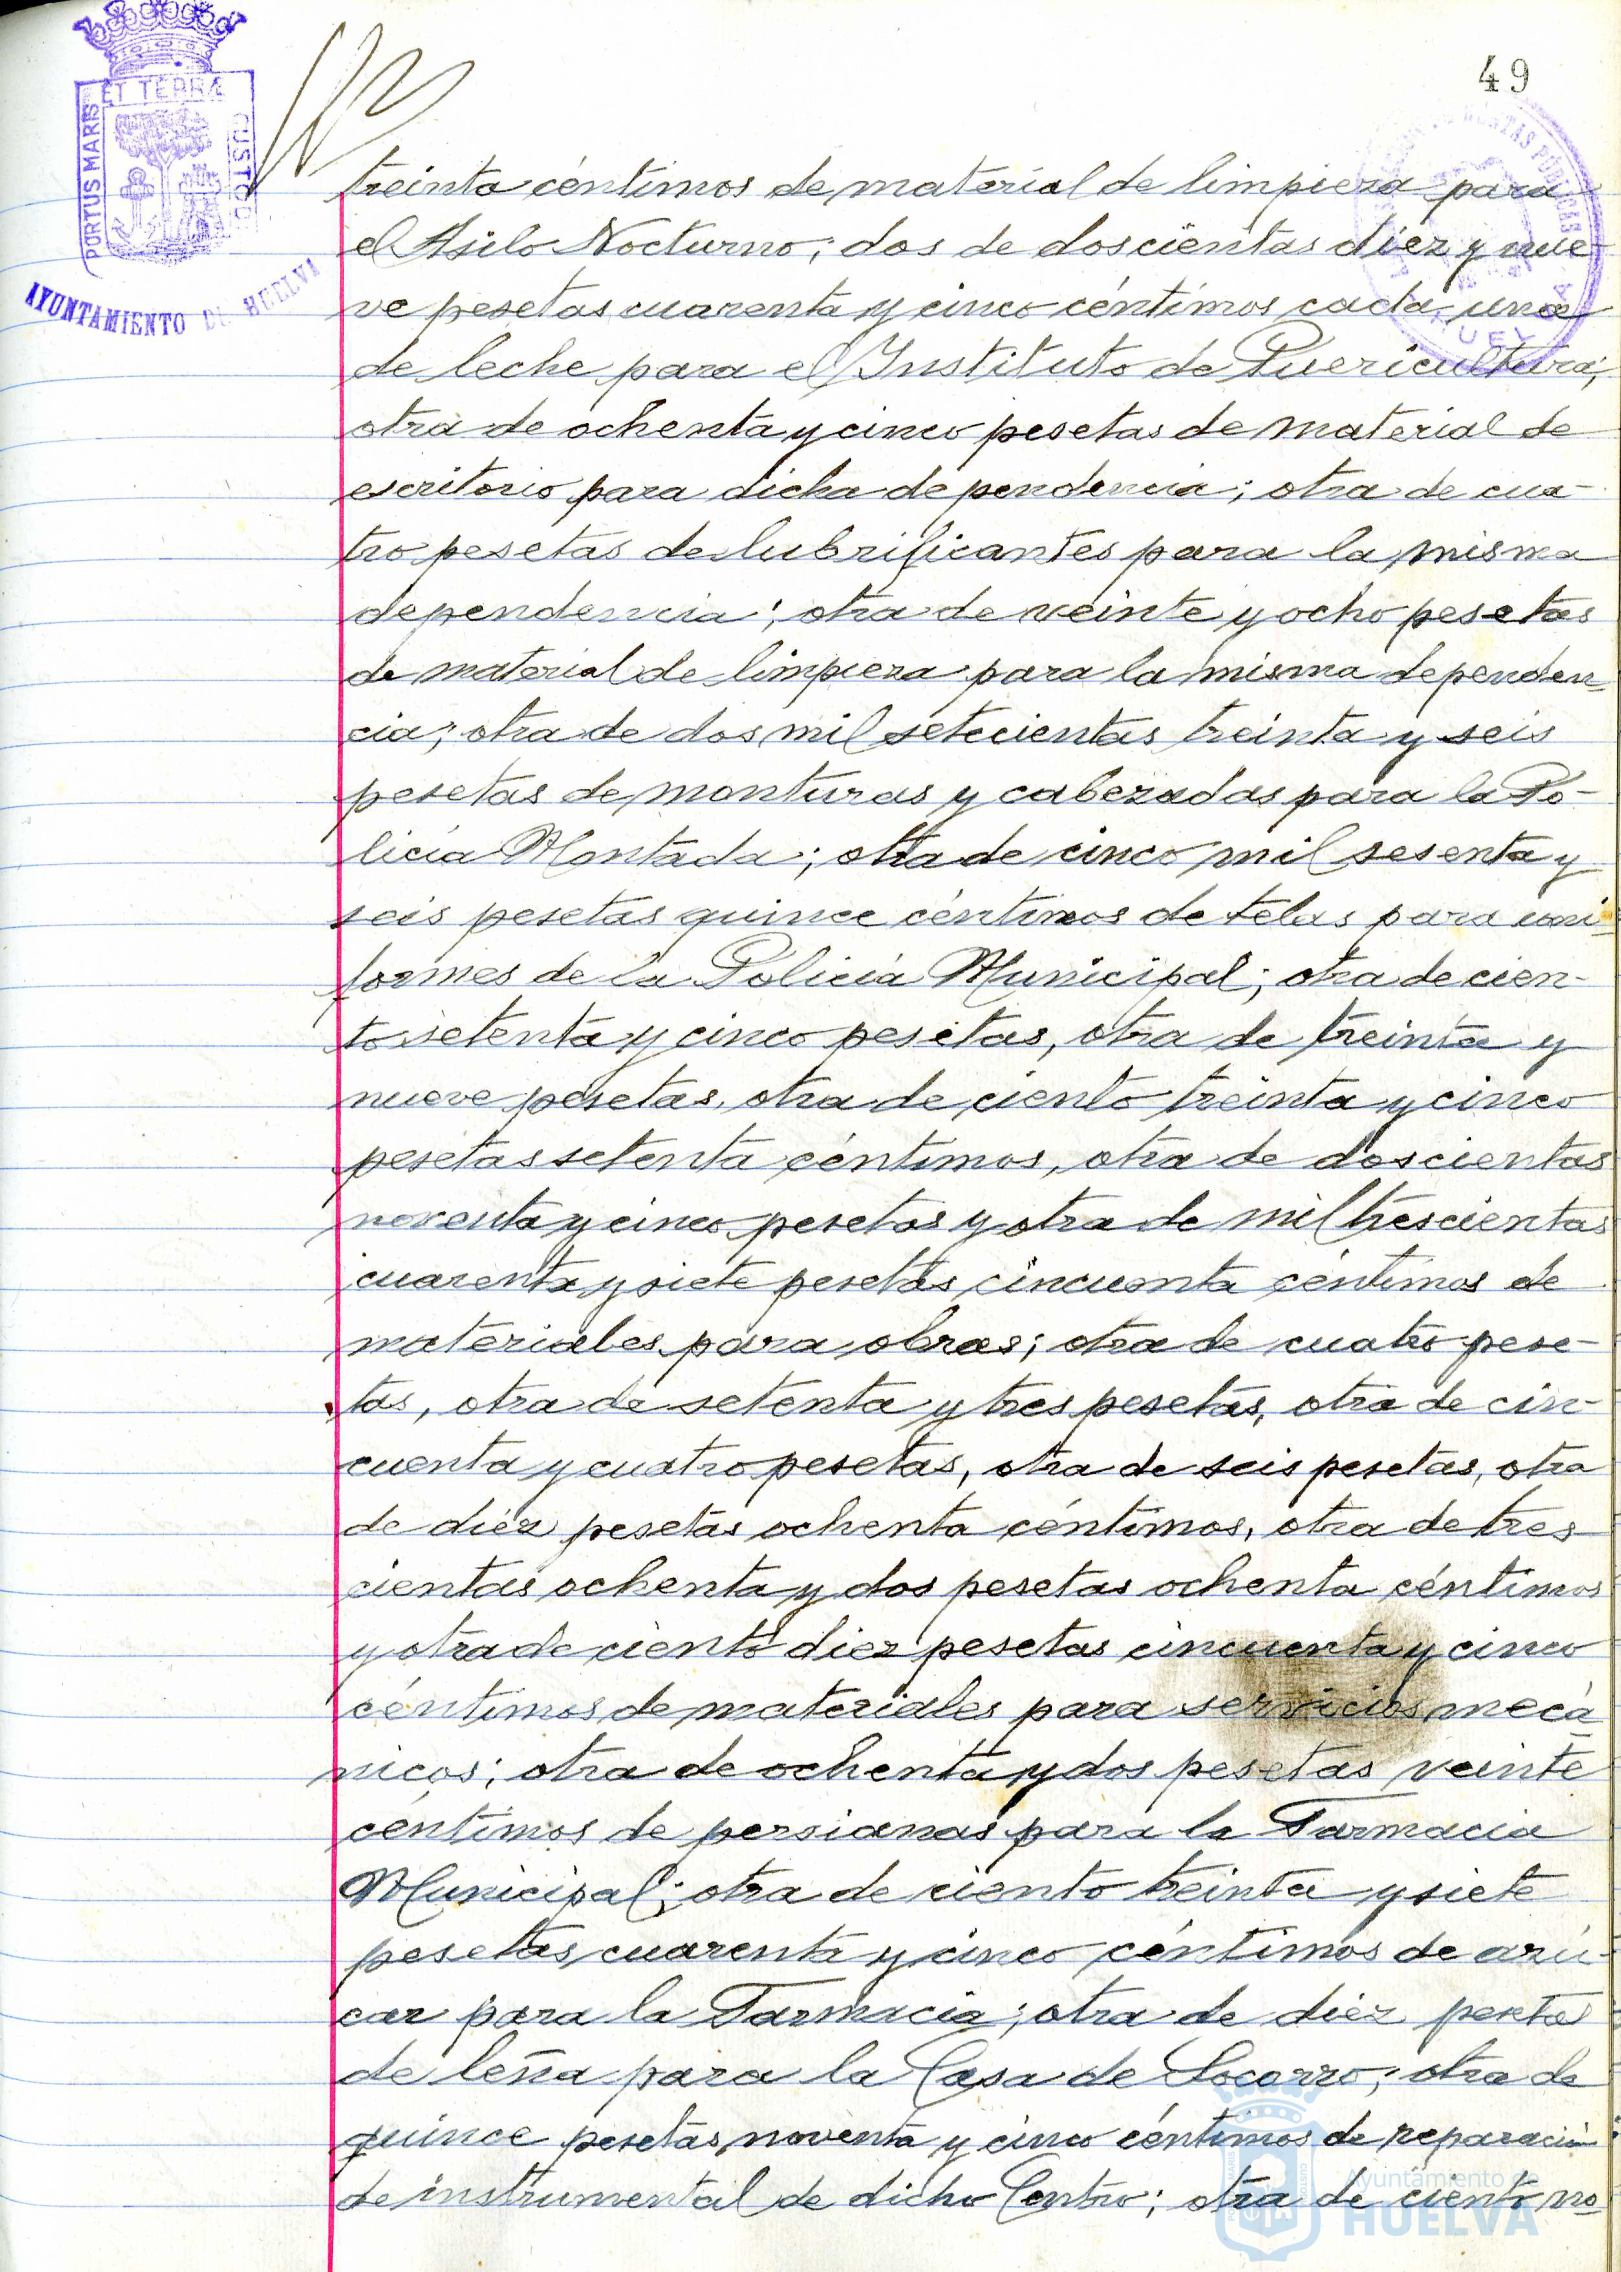 49
ET TERRÆ
PORTUS MARIS
CUSTOD
AYUNTAMIENTO DE HUELVA
HUELVA
treinta céntimos de material de limpieza para
el Asilo Nocturno; dos de doscientas diez y nue-
ve pesetas cuarenta y cinco céntimos cada una
de leche para el Instituto de Puericultura;
otra de ochenta y cinco pesetas de material de
escritorio para dicha dependencia; otra de cua-
tro pesetas de lubrificantes para la misma
dependencia; otra de veinte y ocho pesetas
de material de limpieza para la misma dependen
cia; otra de dos mil setecientas treinta y seis
pesetas de monturas y cabezadas para la Po-
licia Montada; otra de cinco mil sesenta y
seis pesetas quince céntimos de telas para uni-
formes de la Policia Municipal; otra de cien-
to setenta y cinco pesetas, otra de treinta y
nueve pesetas, otra de ciento treinta y cinco
pesetas setenta céntimos, otra de doscientas
noventa y cinco pesetas y otra de mil trescientas
cuarenta y siete pesetas cincuenta céntimos de
materiales para obras; otra de cuatro pese-
tas, otra de setenta y tres pesetas, otra de cin-
cuenta y cuatro pesetas, otra de seis pesetas, otra
de diez pesetas ochenta céntimos, otra de tres
cientas ochenta y dos pesetas ochenta céntimos
y otra de ciento diez pesetas cincuenta y cinco
céntimos de materiales para servicios mecá
nicos; otra de ochenta y dos pesetas veinte
céntimos de persianas para la Farmacia
Municipal; otra de ciento treinta y siete
pesetas cuarenta y cinco céntimos de azú-
car para la Farmacia; otra de diez peseta
de leña para la Casa de Socorro; otra de
quince pesetas noventa y cinco céntimos de reparación
de instrumental de dicho Centro; otra de ciento no
Ayuntamiento de
HUELVA